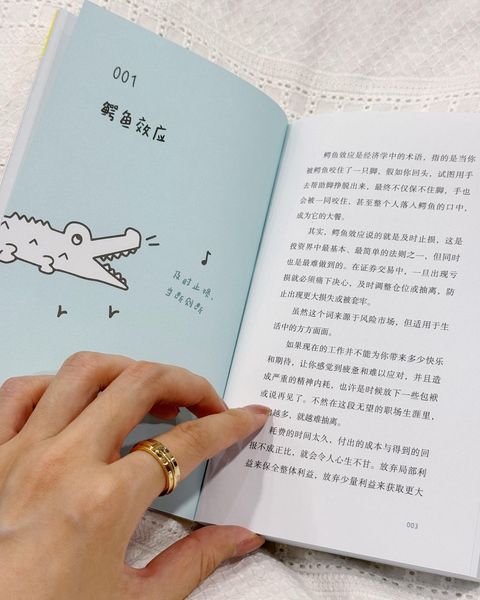 001
鳄鱼效应
及时止损，
当断则断
鳄鱼效应是经济学中的术语，指的是当你
被鳄鱼咬住了一只脚，假如你回头，试图用手
去帮助脚挣脱出来，最终不仅保不住脚，手也
会被一同咬住，甚至整个人落入鳄鱼的口中，
成为它的大餐。
其实，鳄鱼效应说的就是及时止损，这是
投资界中最基本、最简单的法则之一，但同时
也是最难做到的。在证券交易中，一旦出现亏
损就必须痛下决心，及时调整仓位或抽离，防
止出现更大损失或被套牢。
虽然这个词来源于风险市场，但适用于生
活中的方方面面。
如果现在的工作并不能为你带来多少快乐
和期待，让你感觉到疲惫和难以应对，并且造
成严重的精神内耗，也许是时候放下一些包袱
或说再见了。不然在这段无望的职场生涯里，
越多，就越难抽离。
耗费的时间太久，付出的成本与得到的回
报不成正比，就会令人心生不甘。放弃局部利
益来保全整体利益，放弃少量利益来获取更大
003